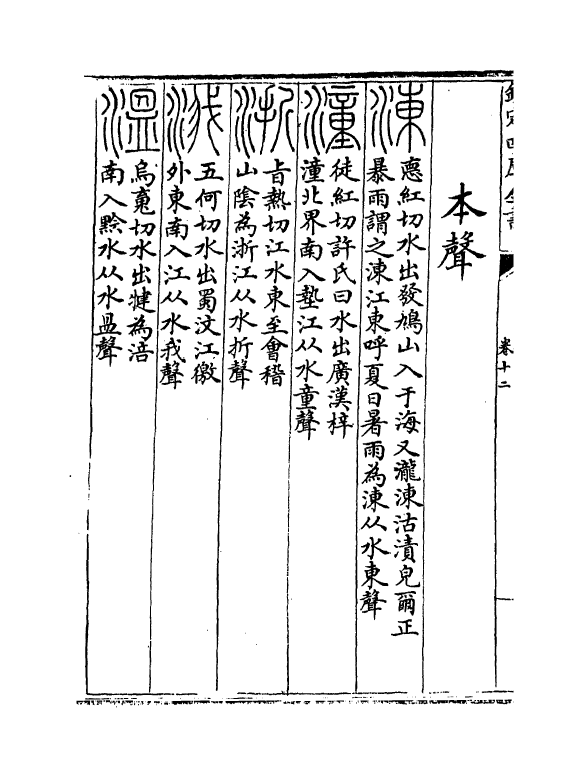 欽定四庫全書
卷十二
本聲
涷
悳紅切水出發鳩山入于海又瀧涷沾漬皃爾正
暴雨謂之涷江東呼夏日暑雨為涷从水東聲
潼
徒紅切許氏曰水出廣漢梓
潼北界南入墊江从水童聲
浙
旨熱切江水東至會稽
山陰為浙江从水折聲
涐
五何切水出蜀汶江徼
外東南入江从水我聲
溫
烏䰟切水出犍為涪
南入黔水从水𥁕聲